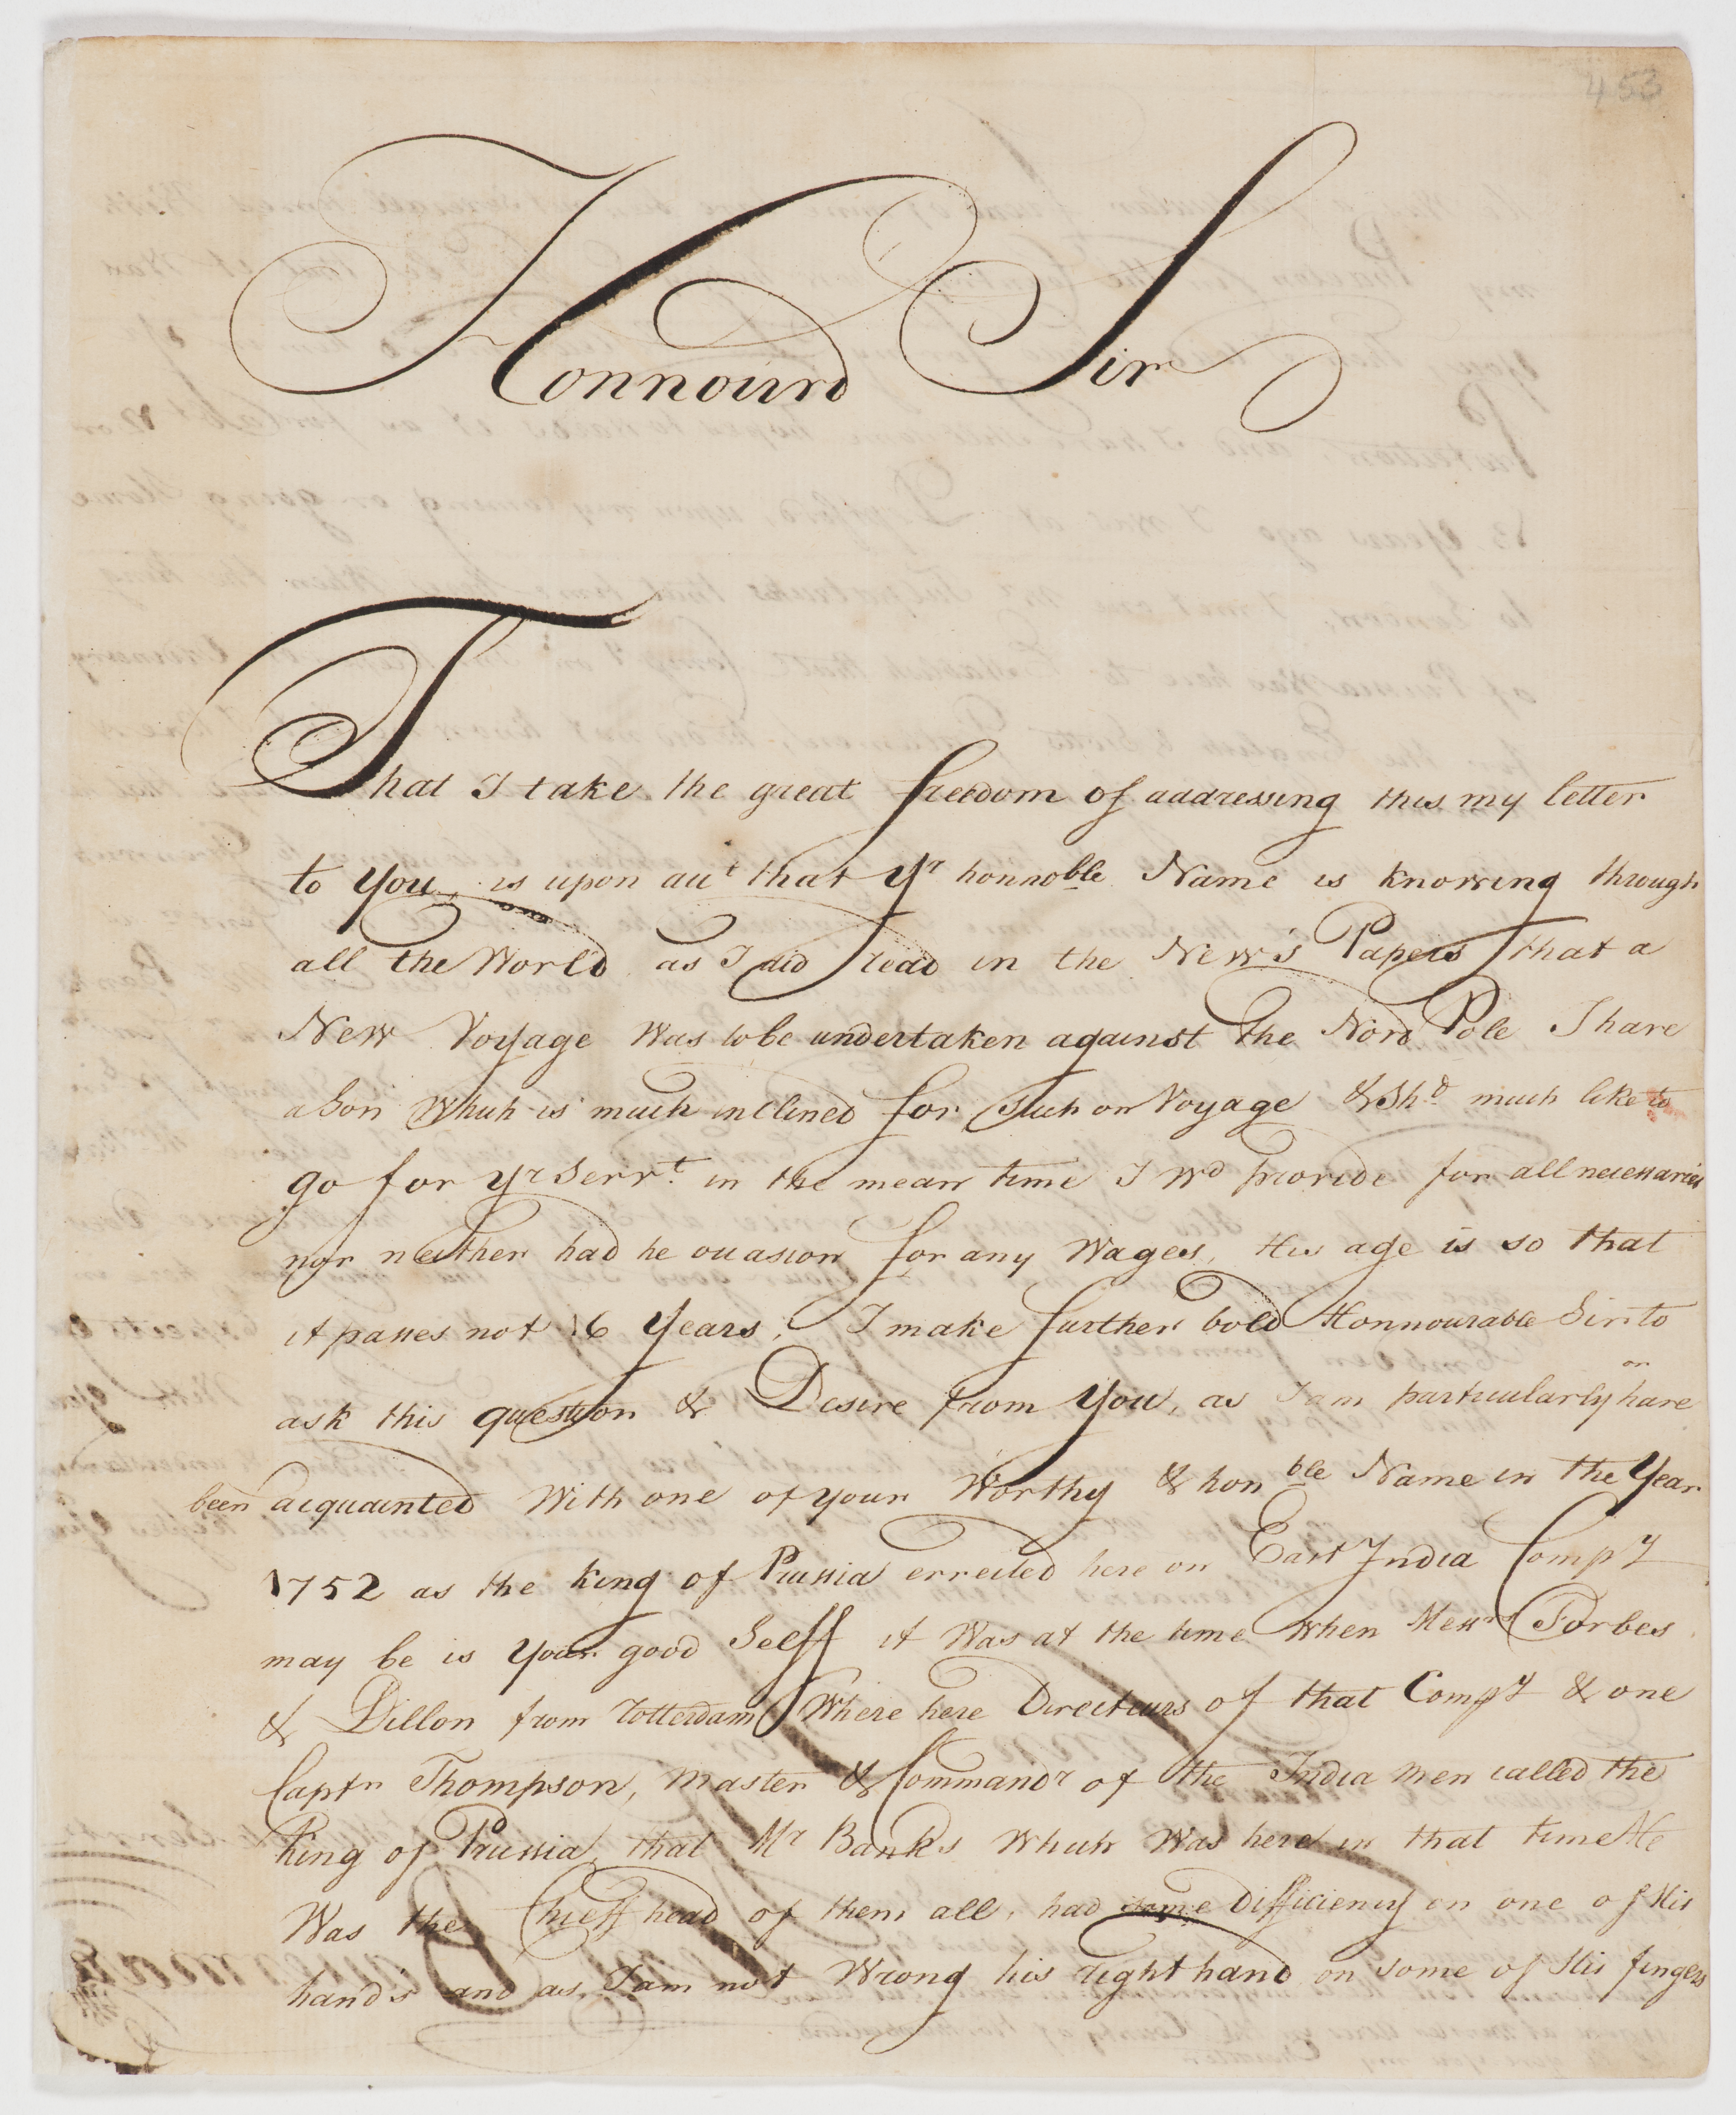 453
Honnourd Sir
That I take the great freedom of addressing this my letter
to You, is upon acct that Yr honnoble Name is knowing through
all the World as I did read in the New's Papers that a
New Voyage was to be undertaken against the Nord Pole I have
a Son which is much inclined for such on Voyage & Shd much like to
go for yr Servt in the mean time I wd provide for all necessaries
nor neither had he occasion for any Wages, His age is so that
it passes not 16 Years, I make further bold Honnourable Sir to
ask this question & Desire from You, as I am particularly
on
have
been acquainted With one of your Worthy & honble Name in the Year
1752 as the King of Prussia errected here on East India Compy
may be is Your good Selff it Was at the time when Messrs Forbes
& Dillon from Rotterdam Where here Directeurs of that Compy & one
Captn Thompson, Master & Commandr of the India men called the
King of Prussia, that Mr Banks which was here in that time He
Was the Chieff head of them all, had some Difficiency on one of His
hand's and as I am not Wrong his right hand on some of His fingers